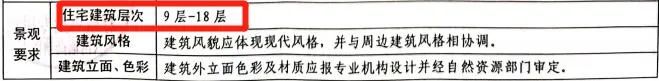 景观要求
住宅建筑层次 9层-18层
建筑风格 建筑风貌应体现现代风格，并与周边建筑风格相协调。
建筑立面、色彩 建筑外立面色彩及材质应报专业机构设计并经自然资源部门审定。